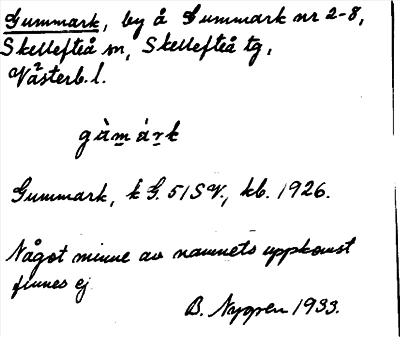 Gummark, by å Gummark nr 2-8,
Skellefteå sn, Skellefteå tg,
Västerb. l.
gàmárk
Gummark, k G. 51 SV., kb. 1926.
Något minne av namnets uppkomst
finnes ej
B. Nygren 1933.